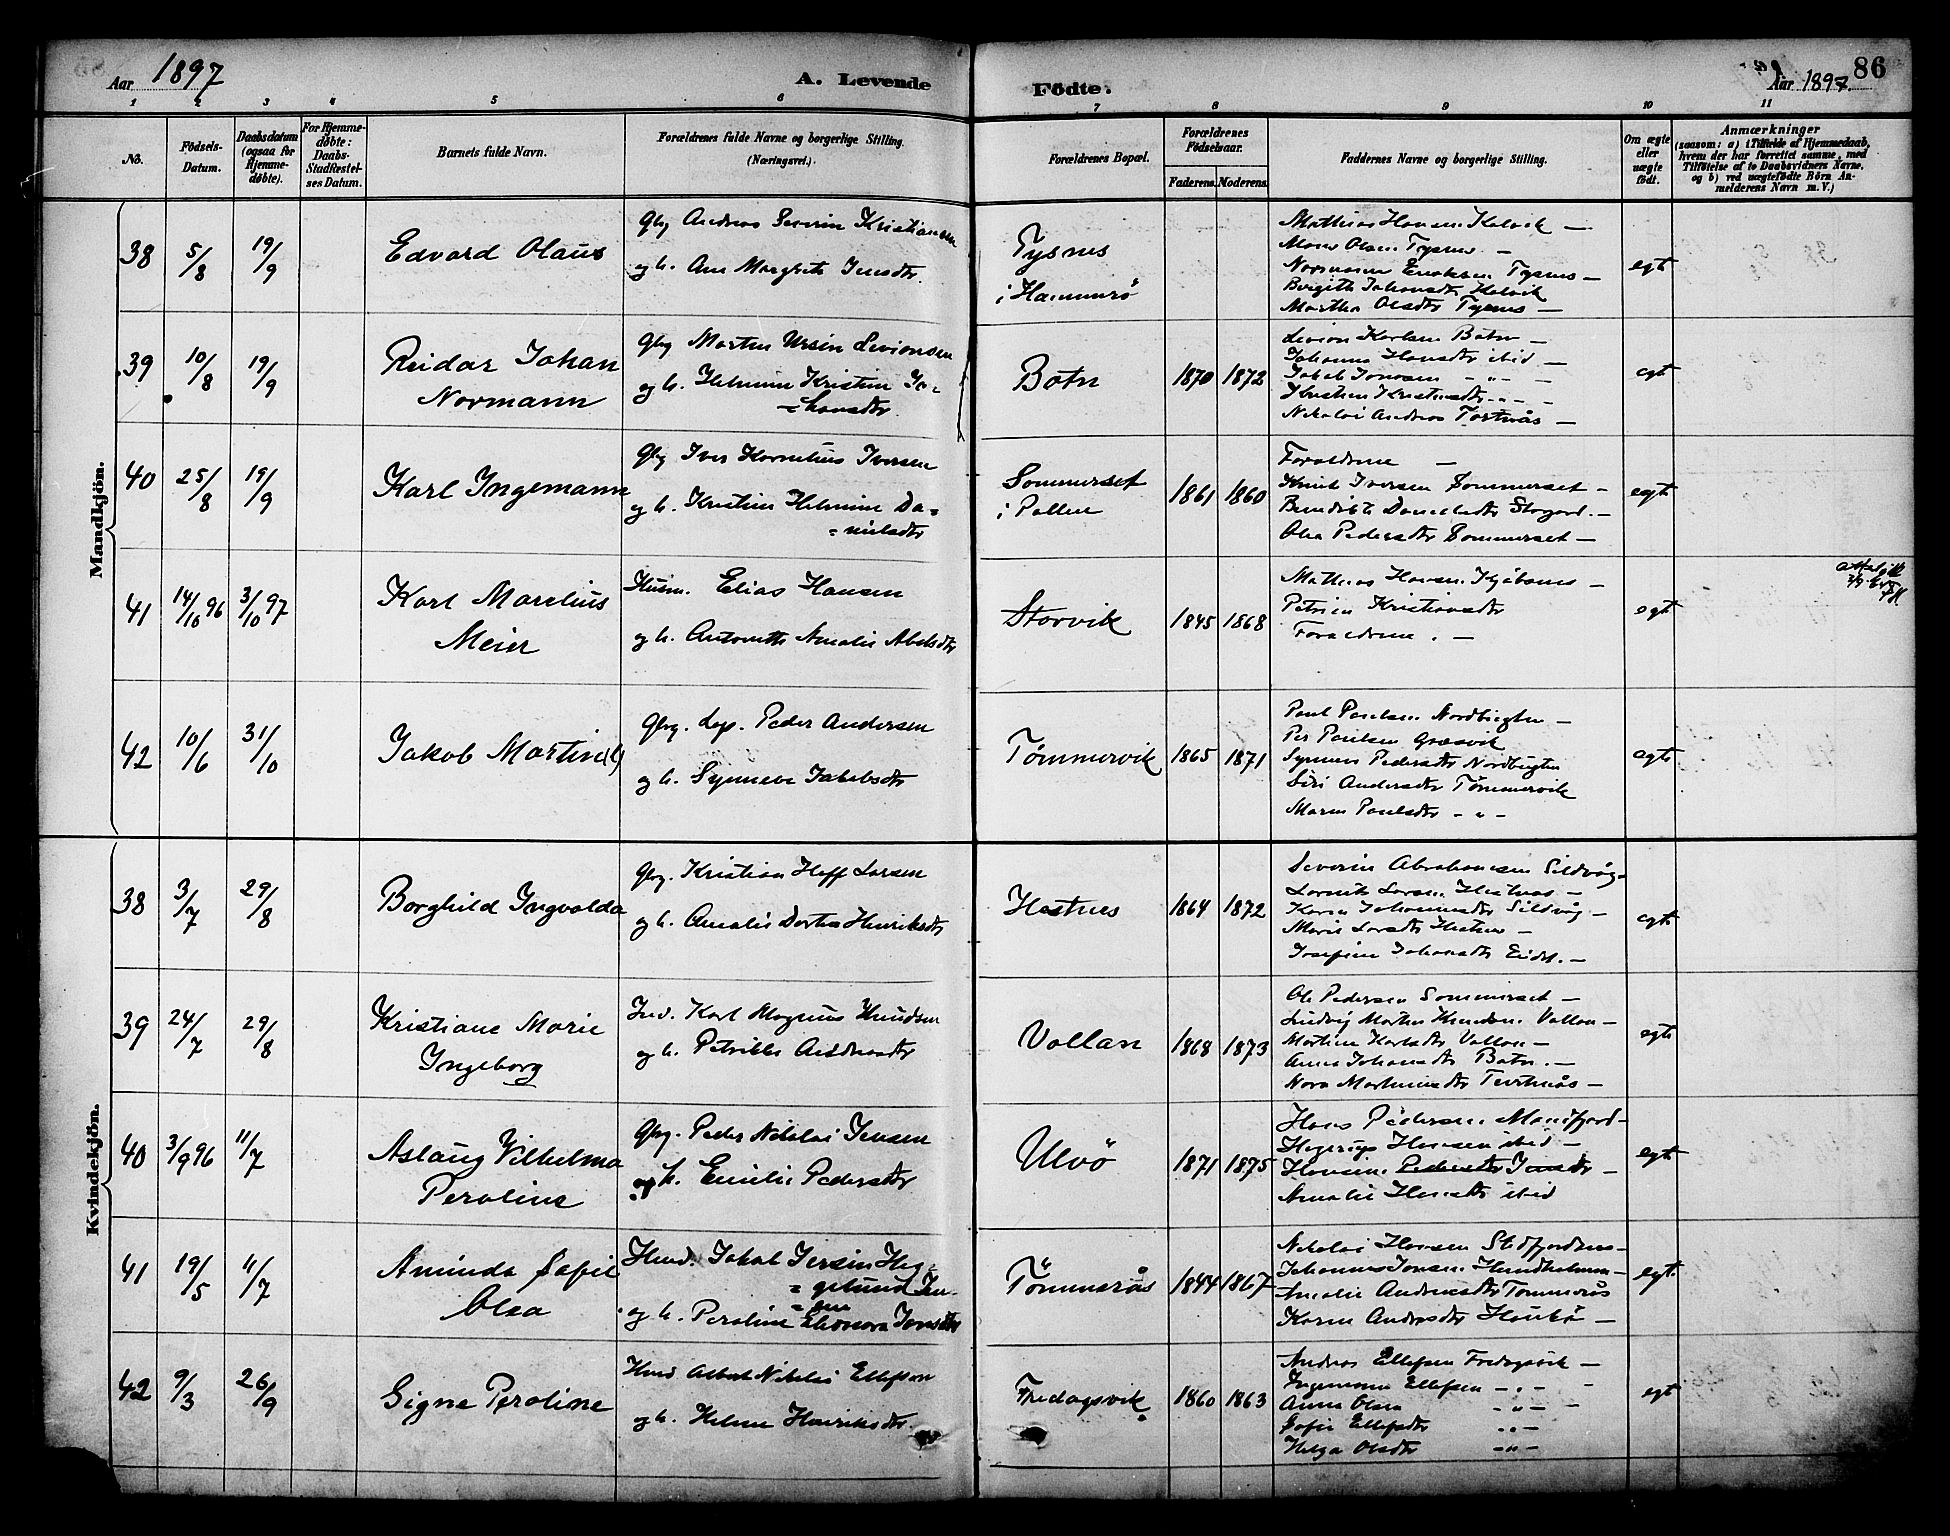 Aar 1897
A. Levende
Födte.
Aar 1897.
86
1 2 3 4 5 6 7 8 9 10 11
No.
Födsels-Datum.
Daabsdatum (ogsaa for Hjemme-døbte).
For Hjemme-døbte: Daabs-Stadfæstel-ses Datum.
Barnets fulde Navn.
Forældrenes fulde Navne og borgerlige Stilling. (Næringsvei.)
Forældrenes Bopæl.
Forældrenes Födselsaar.
Faderens. Moderens.
Faddernes Navne og borgerlige Stilling.
Om ægte eller uægte födt.
Anmærkninger
(saasom: a) i Tilfælde af Hjemmedaab, hvem der har forrettet samme, med Tilföielse af to Daabsvidners Navne, og b) ved uægtefödte Börn An-melderens Navn m. V.)
Mandkjön.
38 5/8 19/9 Edvard Olaus
Gbr. Andreas Severin Kristiansen
og h. Ane Margrete Jensdtr.
Tysnes
i Hammerö
Mathias Hansen Kalvik —
Olsen Tysnes —
Normann Tysnes —
Birgith Johansdtr Kalvik
Martha Olsdtr Tysnes —
egte
39 10/8 19/9 Reidar Johan
Normann
Gbr. Morten Ursin Sevionsen
og h. Helmine Kristine Jo-
=hansdtr.
Botn 1870 1872
Karlsen Botn —
Johanna Hansdtr ibid —
Jakob Jonssen — " —
Kristine Kristensdtr — " —
Nikolai Andreas Tortnäs —
egte
40 25/8 19/9 Karl Ingemann
Gbr. Iver Kornelius Iversen
og h. Kristine Helmine Da=
=nielsdtr
Sommerset
i Pollen
1861 1860
Forældrene —
Knut Iversen Sommerset —
Benedikte Danielsdtr Storjord. —
Olea Pedersdtr Sommerset —
egte
41 14/10 96 3/10 97 Karl Marelius
Meier
Husm. Elias Hansen
og h. Antonette Amalie Abelsdtr
Storvik 1845 1868
Mathias Hansen Kjöbsnes —
Petrine Kristiansdtr
Forældrene. —
egte
42 10/6 31/10 Jakob Martin(?)
Gbr. Lap. Peder Andersen
og h. Synneve Jakobsdtr
Tømmervik 1865 1871
Paul Paulsen Nordbugten —
Per Paulsen Græsvik
Synneve Pedersdtr Nordbugten
Siri Andersdtr Tømmervik
Maren Paulsdtr — " —
egte
Kvindekjön.
38 3/7 29/8 Borghild Ingvalda
Gbr. Kristian Hoff Larsen
og h. Amalie Dortea Henriksdtr
Hestnes 1864 1872
Severin Abrahamsen Sildvåg —
Larsen Hestnes —
Karen Johannesdtr Sildvåg —
Marie Larsdtr Hestnes —
Josefine Johansdtr Eidet. —
egte
39 24/7 29/8 Kristiane Marie
Ingeborg
Ind. Karl Magnus Knudsen
og h. Petrikke Andreasdtr
Vollan 1868 1873
Ole Pedersen Sommerset —
Ludvig Martin Knudsen Vollan —
Martine Karlsdtr Vollan —
Anna Johansdtr Botn. —
Nora Martinusdtr Tortnäs —
egte
40 3/9 96 11/7 Aslaug Vilhelma
Peroline
Gbr. Peder Nikolai Jensen
og h. Emilie Pedersdtr
Ulvö 1871 1875
Hans Pedersen Manfjord —
Hansen ibid —
Hansen. Pedersdtr Jensdtr —
Amalie Hansdtr ibid
egte
41 19/5 11/7 Aminda Sofie
Olea
Hmd. Jakob Jersin Heg-
=gelund Jen-
=sen
og h. Peroline Eleonora Jonsdtr
Tömmerås 1844 1867
Nikolai Hansen Stefjorden —
Johannes Jonsen Hundholmen —
Amalie Andreasdtr Tömmerås
Karen Andersdtr Haukö —
egte
42 9/3 26/9 Signe Peroline
Hmd Albert Nikolai Ellefsen
og h. Helene Henriksdtr.
Fredagsvik 1860 1863
Andreas Ellefsen Fredagsvik —
Ingemann Ellefsen — " —
Anna Olsen — " —
Sofie Ellefsdtr — " —
Helga Olsdtr — " —
egte